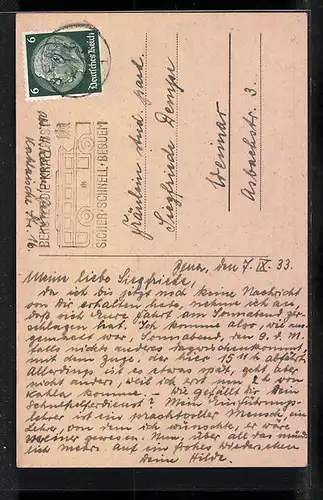 6
Deutsches Reich
6
SICHER·SCHNELL·BEQUEM
Fräulein stud. paed.
Siegfriede
Weimar
Asbachstr. 3.
Jena, den 7. IX. 33.
Mein liebe Siegfriede,
da ich bis jetzt noch keine Nachricht
von Dir erhalten habe, nehme ich an,
daß sich Eure Fahrt am Sonnabend zer-
schlagen hat. Ich komme also, wie aus-
gemacht war, Sonnabend, den 9. d. M.
falls nichts anderes dazwischenkommt,
mit dem Zuge, der hier 15 abfährt.
Allerdings ist es etwas spät, geht aber
nicht anders, weil ich erst um 2 von
Kahla komme. – Wie gefällt Dir Dein
Schulhelferdienst? Mein Einführungs-
lehrer ist ein prachtvoller Mensch, ein
Lehrer, von dem ich wünschte, er wäre
meiner gewesen. Nun, über all das münd-
lich mehr. Auf ein frohes Wiedersehen
Deine Hilde.